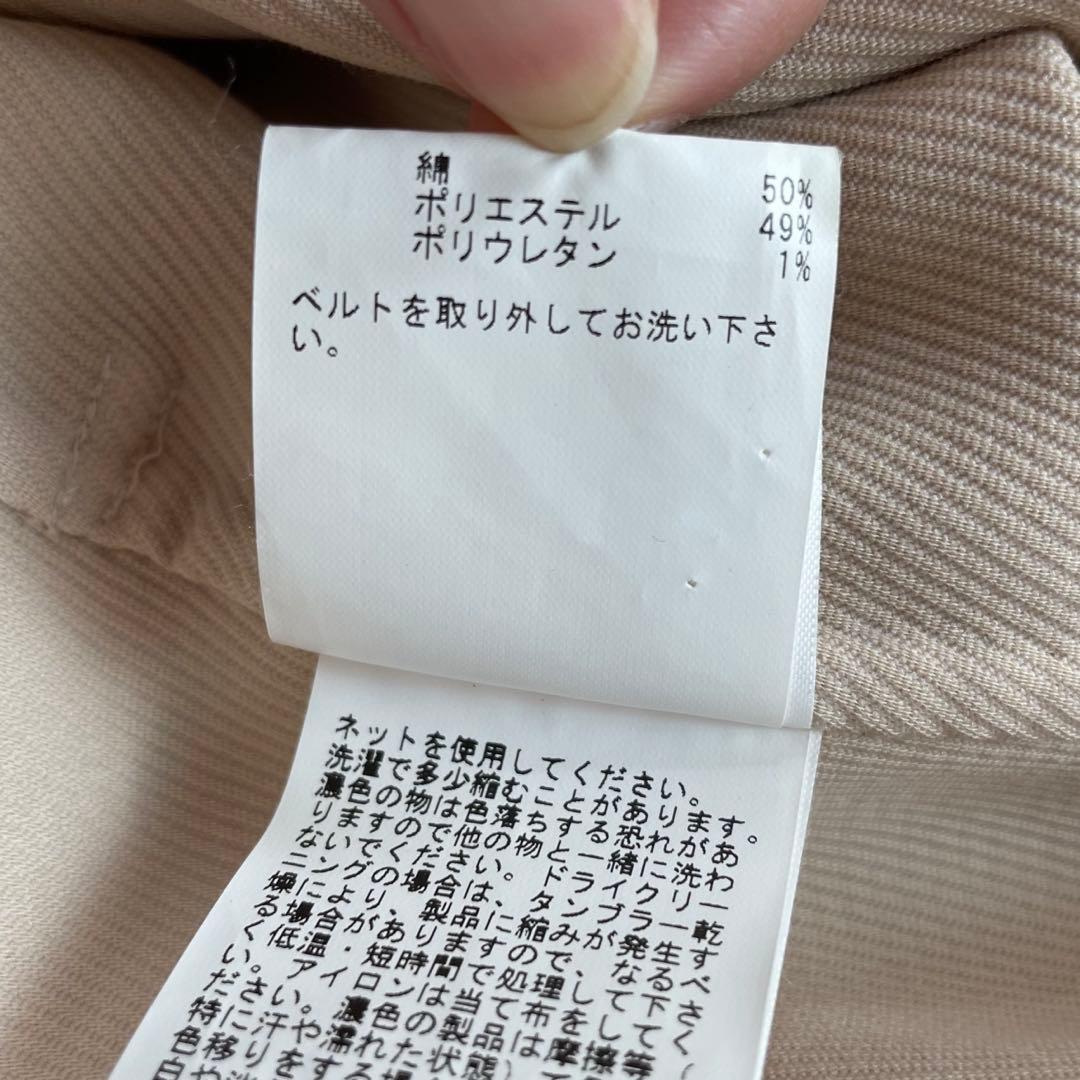 綿 50%
ポリエステル 49%
ポリウレタン 1%
ベルトを取り外してお洗い下さ
い。
ネットを使用してください。
洗濯で多少縮むことがあります。
濃色の物は色落ちする恐れがあ
りますので他の物と一緒に洗わ
ないでください。ドライクリー
ニングの場合は、タンブラー乾
燥により、製品に縮みが発生す
る場合がありますので、なるべ
く低温・短時間で処理して下さ
い。アイロンは当て布をしてく
ださい。濃色の製品は摩擦(
特に汗や濡れた状態)